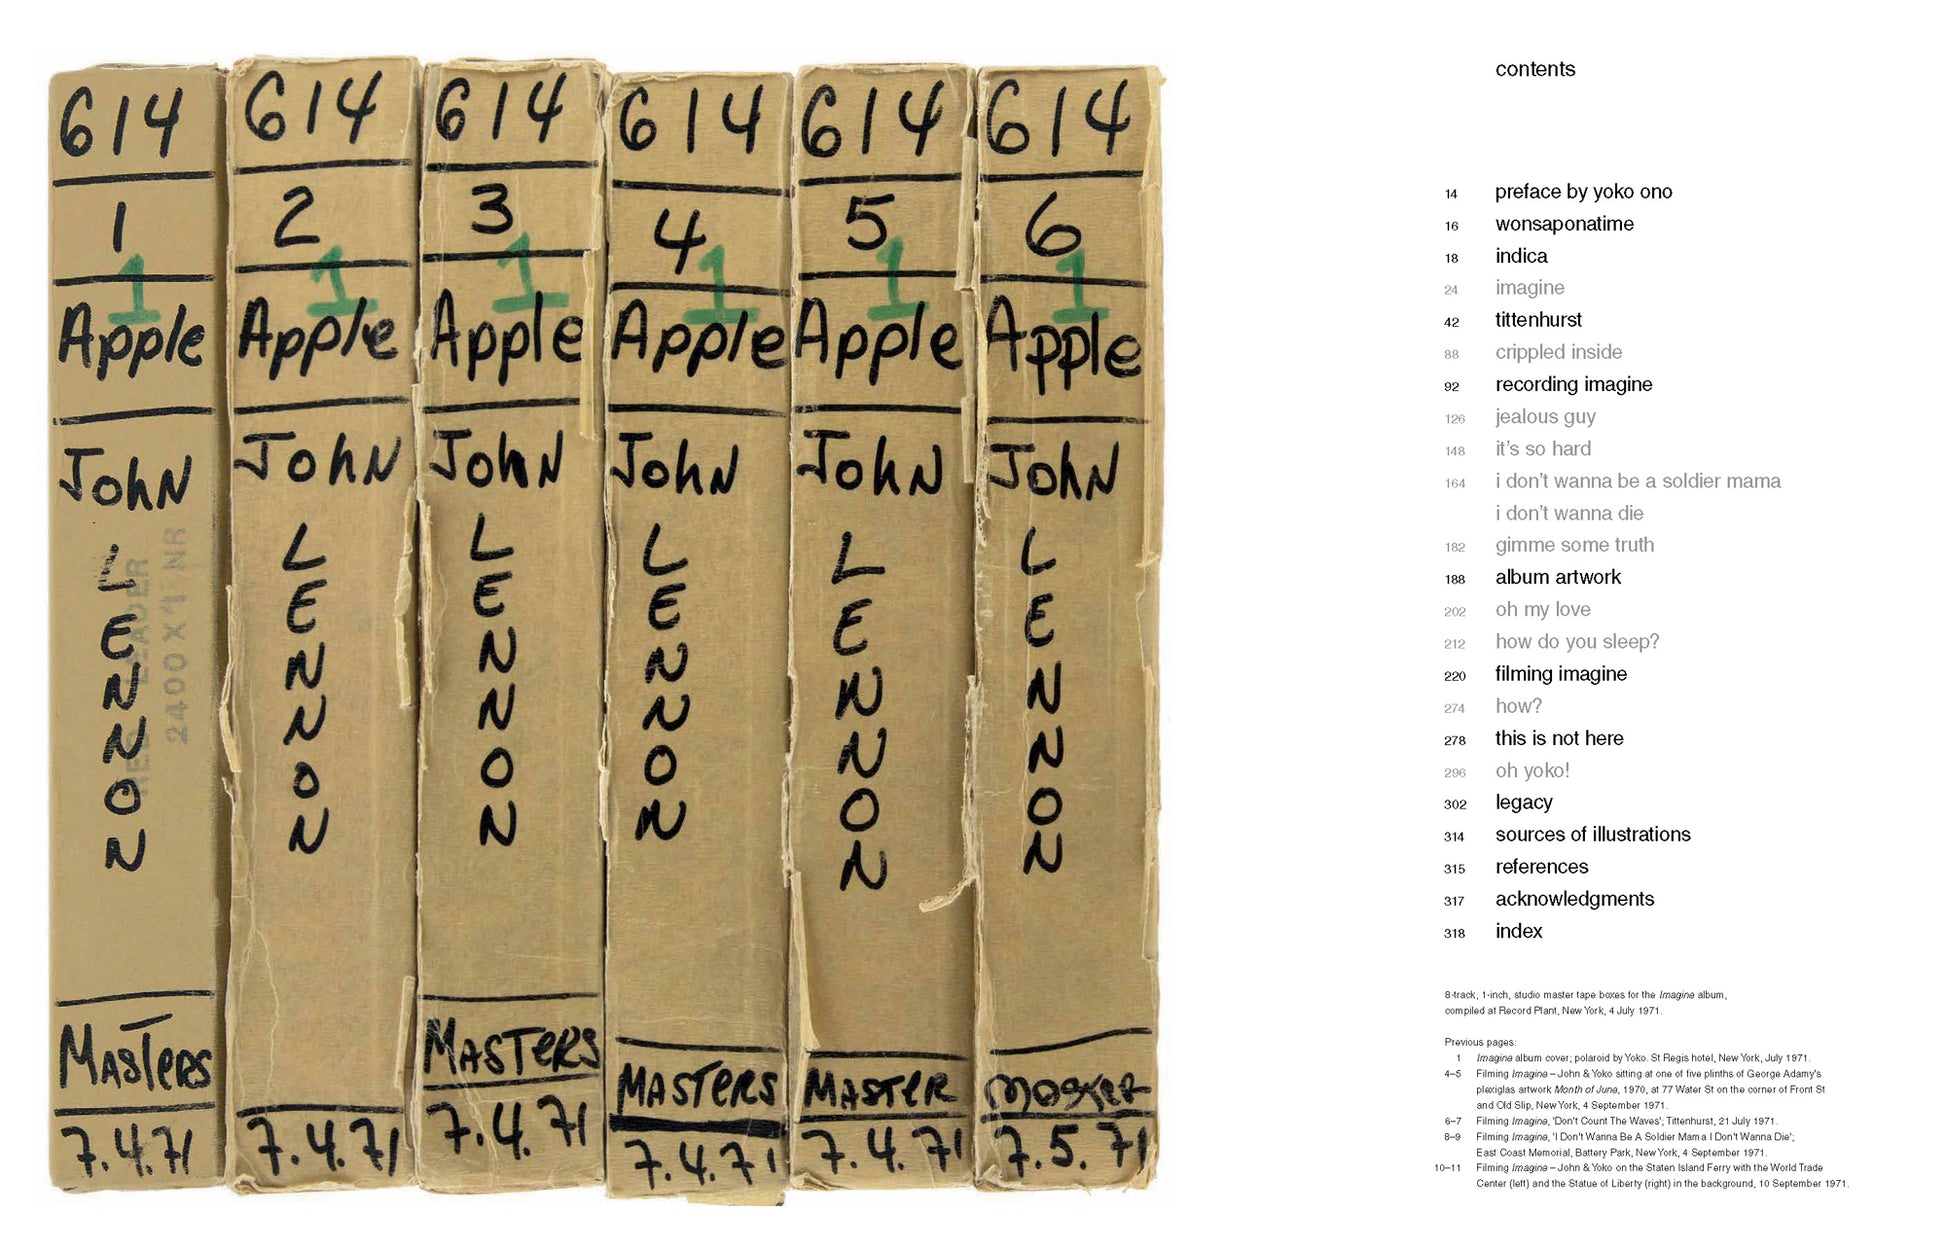 614
1
1
Apple
John
LENNON
MASTERS
7.4.71
614
2
1
Apple
John
LENNON
7.4.71
614
3
1
Apple
John
LENNON
MASTERS
7.4.71
614
4
1
Apple
John
LENNON
MASTERS
7.4.71
614
5
1
Apple
John
LENNON
MASTER
7.4.71
614
6
1
Apple
John
LENNON
MASTER
7.5.71
2400 X 1 NR
contents
14 preface by yoko ono
16 wonsaponatime
18 indica
24 imagine
42 tittenhurst
88 crippled inside
92 recording imagine
126 jealous guy
148 it's so hard
164 i don't wanna be a soldier mama
i don't wanna die
182 gimme some truth
188 album artwork
202 oh my love
212 how do you sleep?
220 filming imagine
274 how?
278 this is not here
296 oh yoko!
302 legacy
314 sources of illustrations
315 references
317 acknowledgments
318 index
8-track, 1-inch, studio master tape boxes for the Imagine album,
compiled at Record Plant, New York, 4 July 1971.
Previous pages:
1 Imagine album cover; polaroid by Yoko. St Regis hotel, New York, July 1971.
4–5 Filming Imagine – John & Yoko sitting at one of five plinths of George Adamy's
plexiglas artwork Month of June, 1970, at 77 Water St on the corner of Front St
and Old Slip, New York, 4 September 1971.
6–7 Filming Imagine, 'Don't Count The Waves'; Tittenhurst, 21 July 1971.
8–9 Filming Imagine, 'I Don't Wanna Be A Soldier Mama I Don't Wanna Die';
East Coast Memorial, Battery Park, New York, 4 September 1971.
10–11 Filming Imagine – John & Yoko on the Staten Island Ferry with the World Trade
Center (left) and the Statue of Liberty (right) in the background, 10 September 1971.